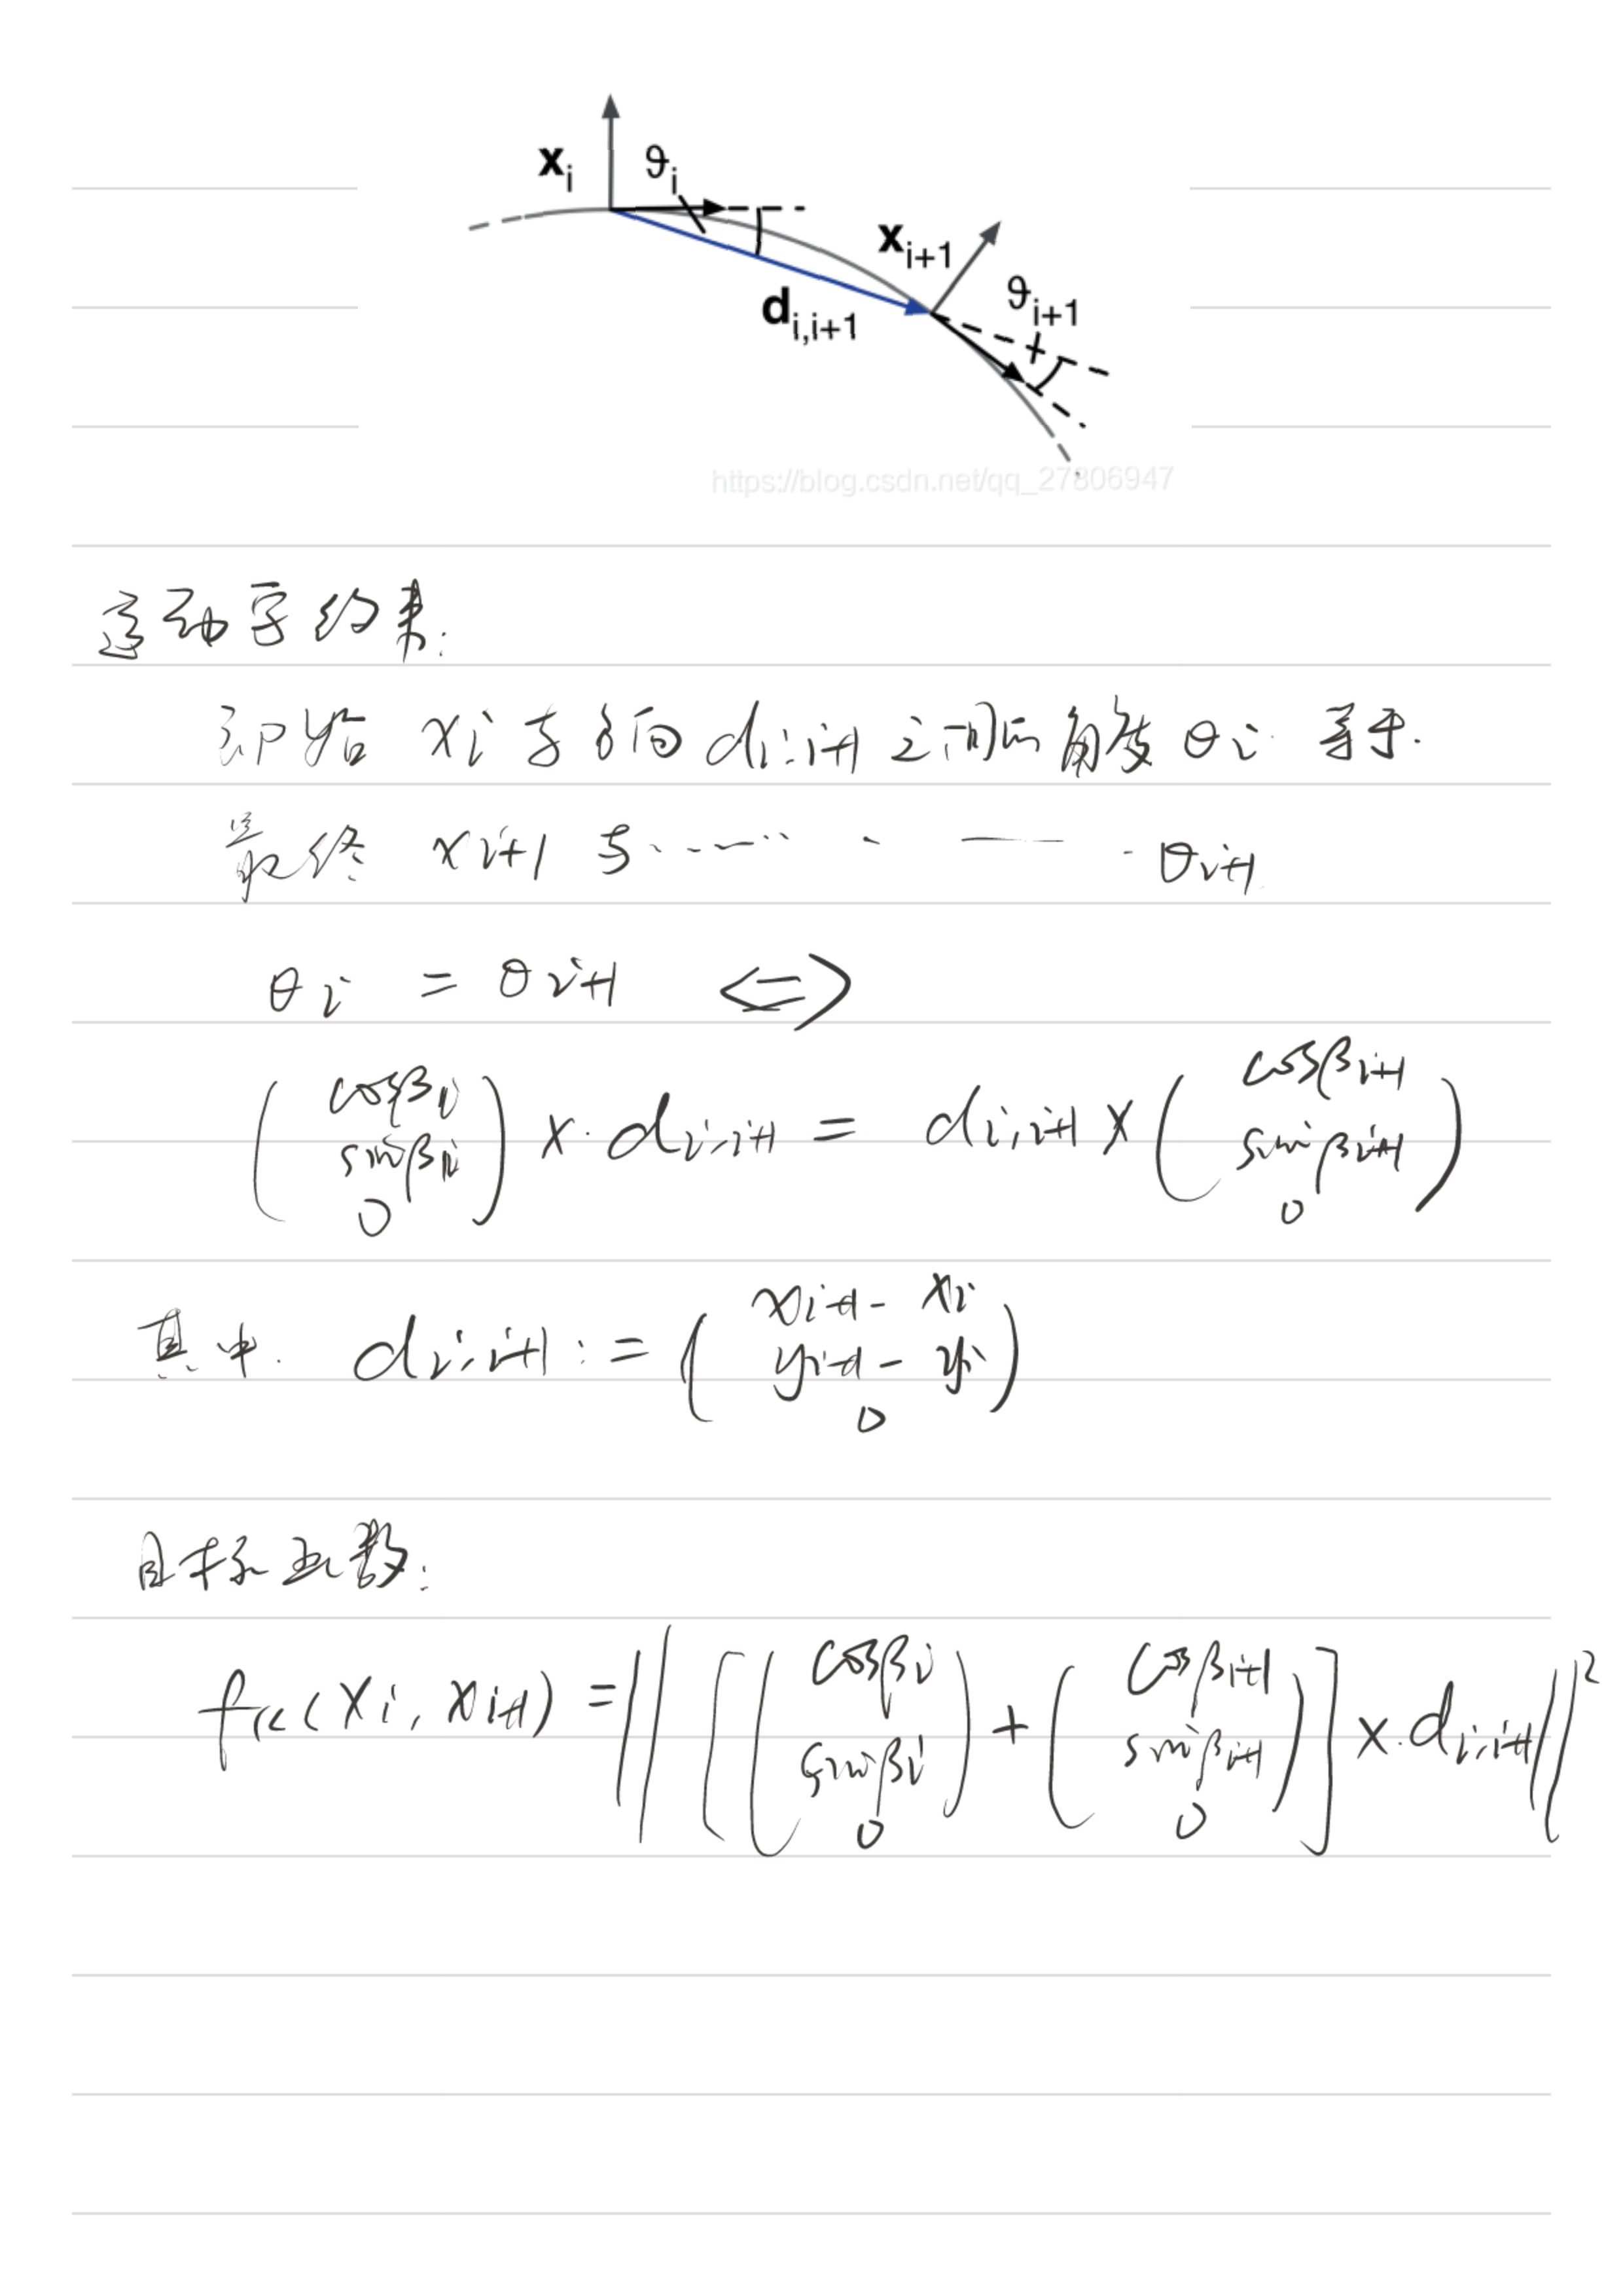 x_i ϑ_i x_{i+1} ϑ_{i+1}
d_{i,i+1}
https://blog.csdn.net/qq_27806947
运动学约束:
初始 x_i 与方向 d_{i,i+1} 之间的角度 θ_i 等于.
最终 x_{i+1} 与 ...... θ_{i+1}
θ_i = θ_{i+1} <=>
( cosβ_i sinβ_i 0 ) × d_{i,i+1} = d_{i,i+1} × ( cosβ_{i+1} sinβ_{i+1} 0 )
其中. d_{i,i+1} := ( x_{i+1} - x_i y_{i+1} - y_i 0 )
目标函数:
f_k(x_i, x_{i+1}) = || [ ( cosβ_i sinβ_i 0 ) + ( cosβ_{i+1} sinβ_{i+1} 0 ) ] × d_{i,i+1} ||²